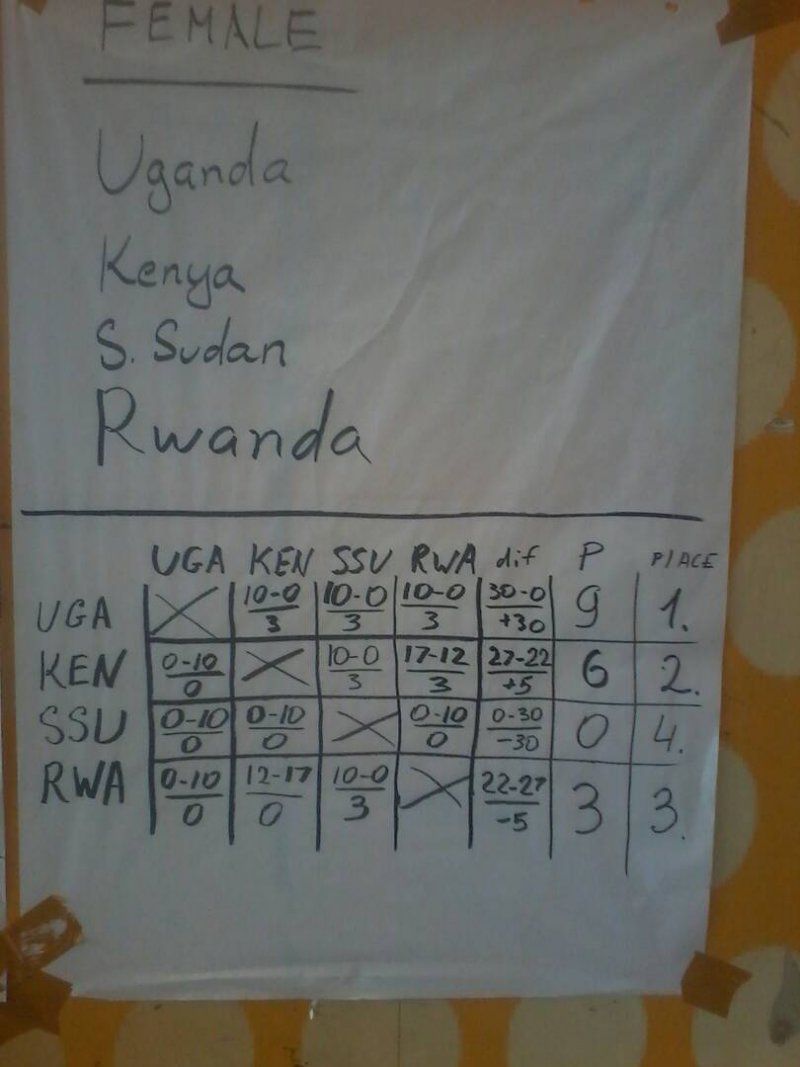 FEMALE
Uganda
Kenya
S. Sudan
Rwanda
UGA KEN SSU RWA dif P PLACE
UGA 10-0 10-0 10-0 30-0 9 1.
3 3 3 +30
KEN 0-10 10-0 17-12 27-22 6 2.
0 3 3 +5
SSU 0-10 0-10 0-10 0-30 0 4.
0 0 0 -30
RWA 0-10 12-17 10-0 22-27 3 3.
0 0 3 -5